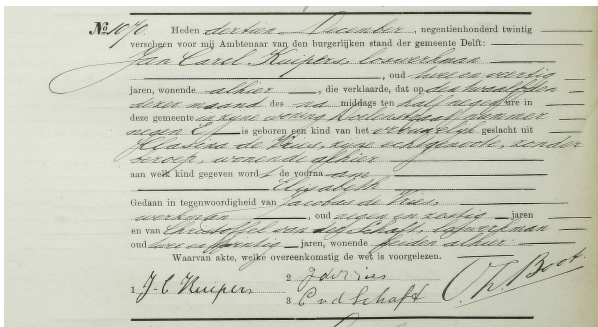 No 1070. Heden dertien December, negentienhonderd twintig
verscheen voor mij Ambtenaar van den burgerlijken stand der gemeente Delft:
Jan Carel Kuipers, loswerkman
, oud twee en veertig
jaren, wonende alhier, die verklaarde, dat op den twaalfden
dezer maand des na middags ten half negen ure in
deze gemeente in zijne woning Doelenstraat nummer
negen is geboren een kind van het vrouwelijk geslacht uit
Klasina de Vries, zijne echtgenoote, zonder
beroep, wonende alhier
aan welk kind gegeven word t de voorna am
Elisabeth
Gedaan in tegenwoordigheid van Jacobus de Vries,
werkman, oud negen en zestig jaren
en van Christoffel van der Schaft, loswerkman
oud jaren, wonende beiden alhier.
Waarvan akte, welke overeenkomstig de wet is voorgelezen.
1 J. C. Kuipers 2 J de vries
3 C v d Schaft